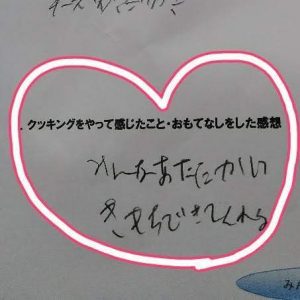 .クッキングをやって感じたこと・おもてなしをした感想
みんなあたたかい
きもちできてくれる
み